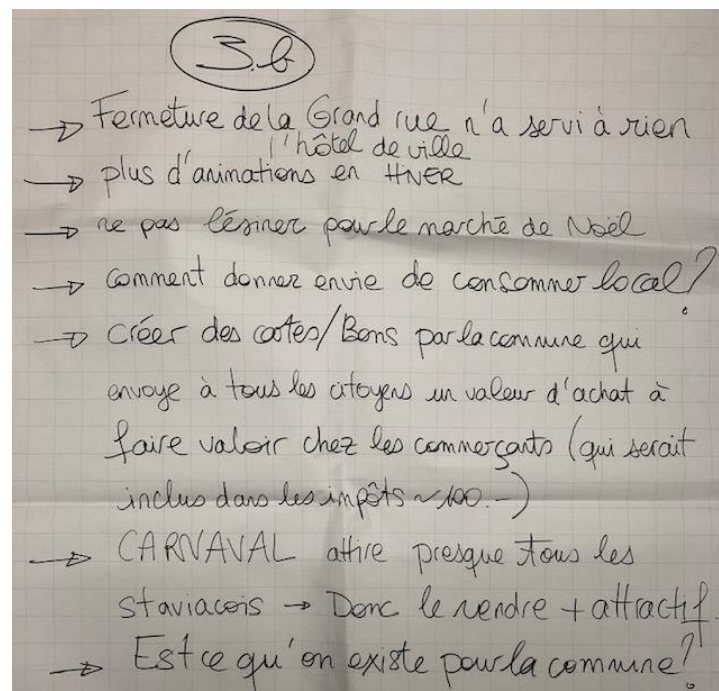 3.b
→ Fermeture de la Grand rue n'a servi à rien
l'hôtel de ville
→ plus d'animations en HIVER
→ ne pas lésiner pour le marché de Noël
→ comment donner envie de consommer local?
→ créer des cartes/Bons par la commune qui
envoye à tous les citoyens un valeur d'achat à
faire valoir chez les commerçants (qui serait
inclus dans les impôts ~100.-)
→ CARNAVAL attire presque tous les
staviacois → Donc le rendre + attractif.
→ Est ce qu'on existe pour la commune?